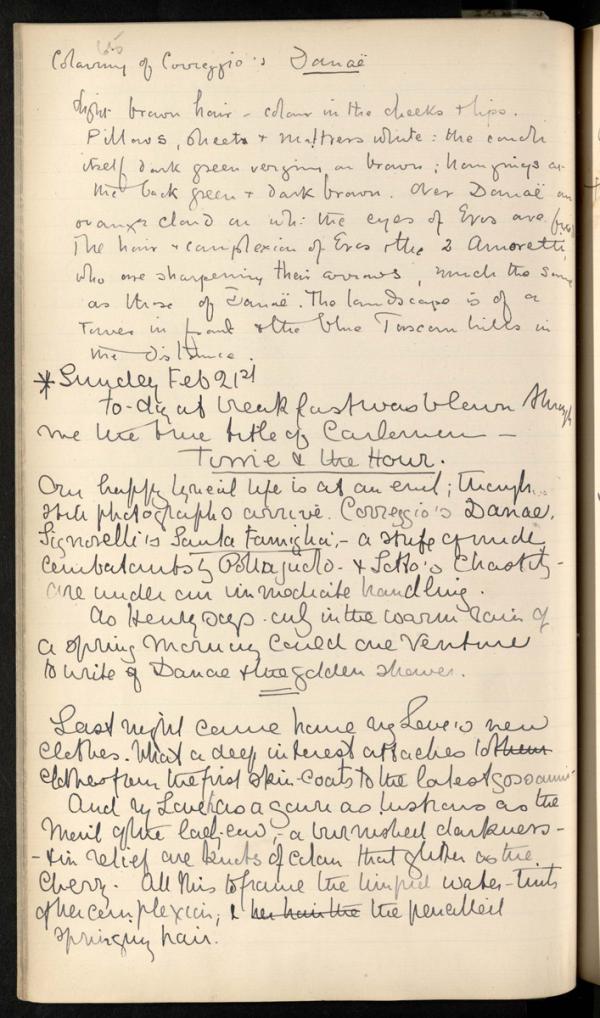 Colouring of Correggio's Danaë
light brown hair - colour in the cheeks & lips.
Pillows, sheets & mattress white : the couch
itself dark green verging on brown ; hangings at
the back green & dark brown. Over Danaë an
orange cloud on wh: the eyes of Eros are
The hair & complexion of Eros & the 2 Amoretti,
who are sharpening their arrows, much the same
as those of Danaë. The landscape is of a
tower in front & the blue Tuscan hills in
the distance.
* Sunday Feb 21st
To-day at breakfast was blown through
me the true title of Carloman —
The Hour.
Our happy lyrical life is at an end ; though
still photographs arrive. Correggio's Danae,
Signorelli's Santa Famiglia, - a strife of nude
combatants by Pollajuolo - &  Chastity -
are under our immediate handling.
As Henry says only in the warm rain of
a spring morning could one venture
to write of Danae & the golden shower.
Last night came home my Love's new
clothes. What a deep interest attaches to them
clothes from the first skin-coats to the latest
And my Love has a gown as lustrous as the
of the - a burnished darkness -
- & in relief are knots of colour that glitter as the
cherry. All this to frame the limpid water-tints
of her complexion, & her hair the the pencilled
springing hair.